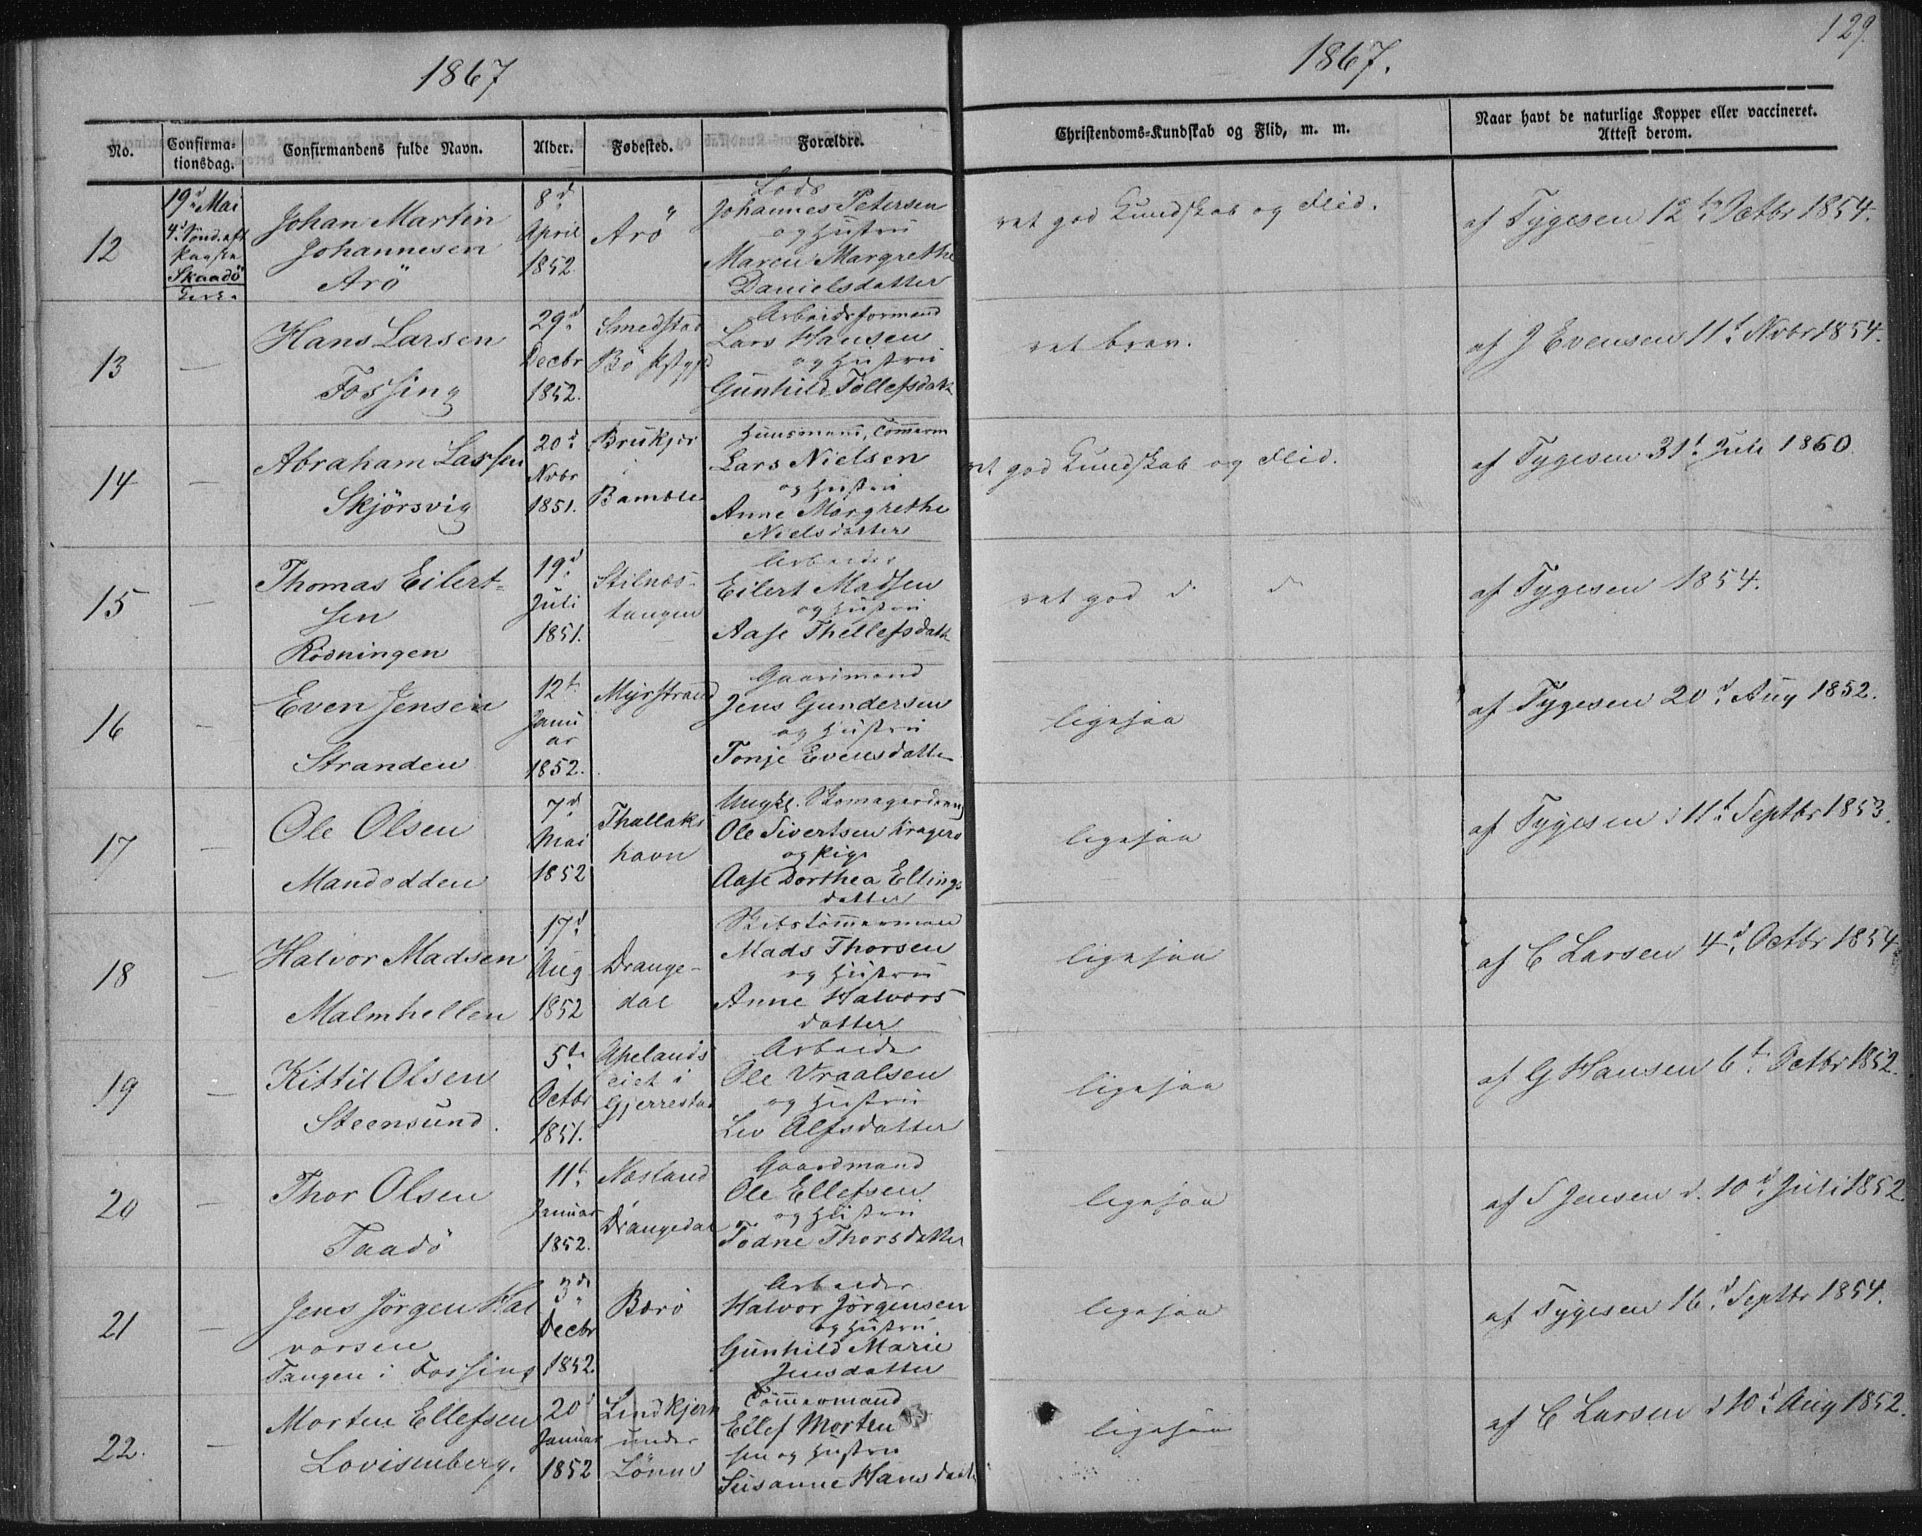 1867
No.
Confirma-
tionsdag.
Confirmandens fulde Navn.
Alder.
Fødested.
Forældre.
12
19d Mai
4d Sønd. eft
Paaske
Skaadö
Kirke
Johan Martin
Johannesen
Arö
8d
April
1852
Arö
Lods
Johannes Petersen
og Hustru
Maren Margrethe
Danielsdatter
13
—
Hans Larsen
Fossing
29d
Decbr
1852.
Smedstad
Bö
Arbeidsformand
Lars Hansen
og Hustru
Gunhild Tollefsdatt
14
—
Abraham Larssen
Skjörsvig
20d
Nvbr
1851.
Brukjær
i
Bamble
Huusmand, Tömerm
Lars Nielsen
og Hustru
Anne Margrethe
Nielsdatter
15
—
Thomas Eilert-
sen
Rödningen
19d
Juli
1851.
Stilnæs-
tangen
Arbeider
Eilert Madsen
og Hustru
Aase Thellefsdatt
16
—
Even Jensen
Stranden
12t
Janu
ar
1852.
Myrstrand
Gaardmand
Jens Gundersen
og Hustru
Tonje Evensdatter
17
—
Ole Olsen
Mandodden
7d
Mai
1852
Thallaks
havn
Ungkl. Skomagerdreng
Ole Sivertsen Kragerö
og Pige
Aase Dorthea Ellings
datter
18
—
Halvor Madsen
Malmhellen
17d
Aug
1852
Drange-
dal
Skibstömmermand
Mads Thorsen
og Hustru
Anne Halvors
datter
19
—
Kittil Olsen
Steensund.
5te
Octbr
1851.
Apelands
eiet i
Gjerrestad
Arbeider
Ole Vraalsen
og Hustru
Liv Alfsdatter
20
—
Thor Olsen
Taadö
11t
Januar
1852.
Næsland
i
Drangedal
Gaardmand
Ole Ellefsen
og Hustru
Todne Thorsdatter
21
—
Jens Jörgen Hal
vorsen
Tangen i Fossing
3de
Decbr
1852.
Barö
Arbeider
Halvor Jörgensen
og Hustru
Gunhild Marie
Jensdatter
22.
—
Morten Ellefsen
Lovisenberg.
20d
Januar
1852
Lindkjern
under
Lönne
Tömmermand
Ellef Morten
sen og Hustru
Susanne Hansdatt
1867.
129
Christendoms-Kundskab og Flid, m. m.
Naar havt de naturlige Kopper eller vaccineret.
Attest derom.
ret god Kundskab og Flid.
af Tygesen 12te Octbr 1854.
ret brav.
af J Evensen 11t Nvbr 1854.
ret god Kundskab og Flid.
af Tygesen 31t Juli 1860
ret god d d
af Tygesen 1854.
ligesaa
af Tygesen 20d Aug 1852.
ligesaa
af Tygesen d 11t Septbr 1853.
ligesaa
af C Larsen 4d Octbr 1854
ligesaa
af G Hansen 6te Octbr 1852.
ligesaa
af S Jensen d. 10d Juli 1852.
ligesaa
af Tygesen 16d Septbr 1854.
ligesaa
af C Larsen d 10d Aug 1852.